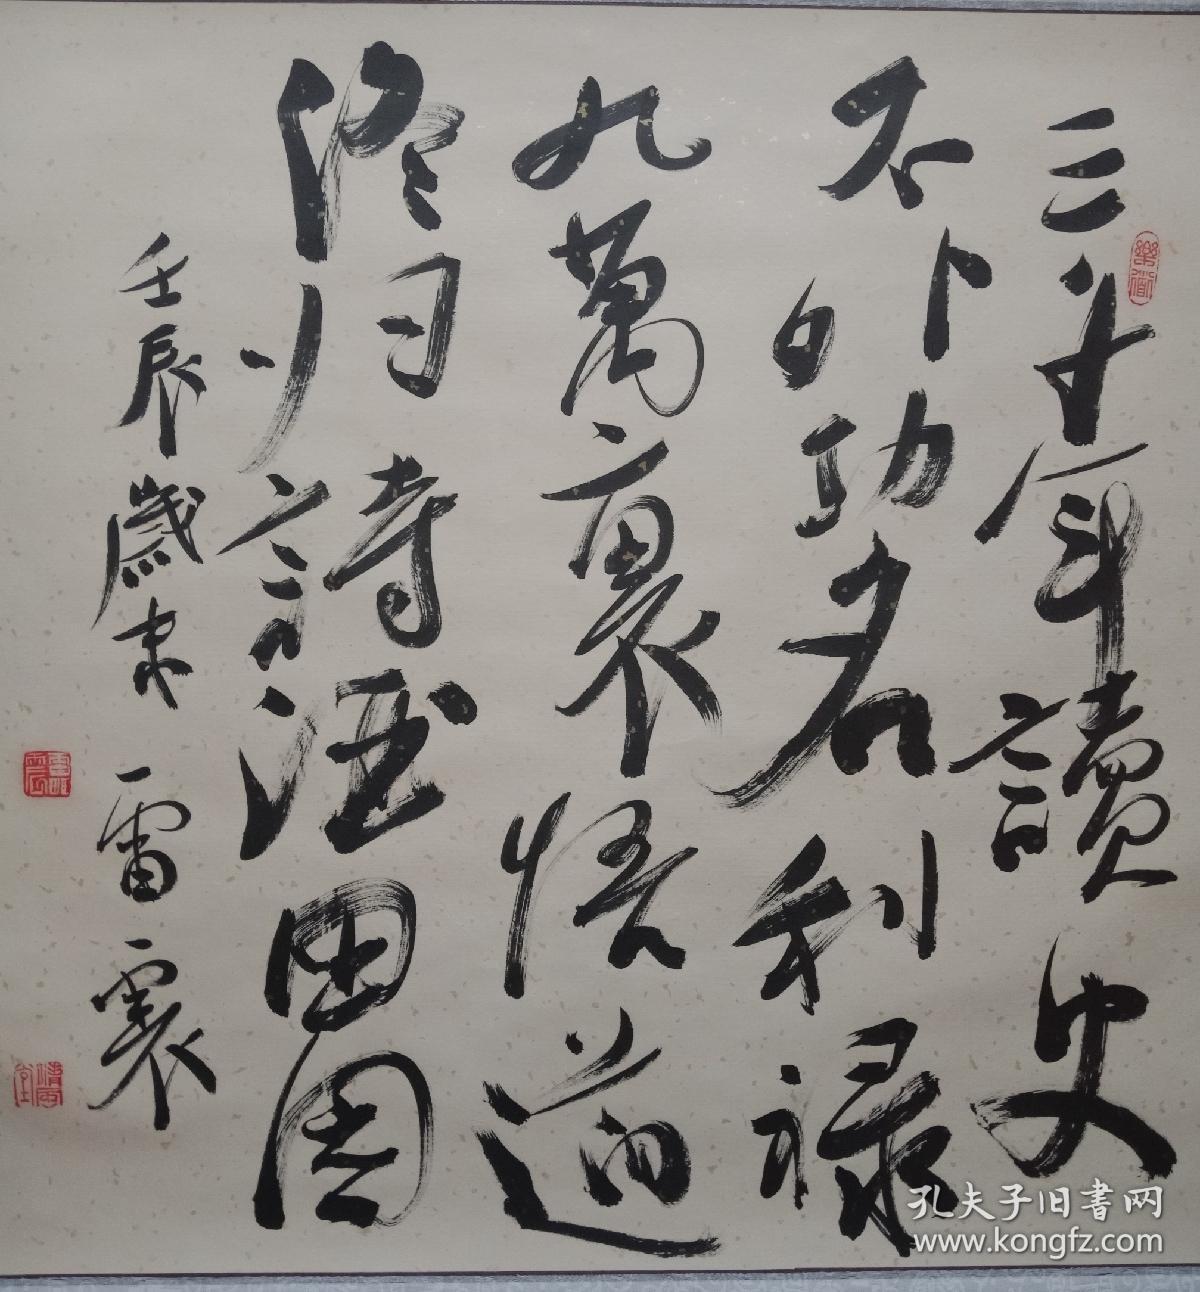 三十年讀史
不外功名利禄
九萬裏悟道
终归詩酒田園
壬辰歲末 雷震
樂道
孔夫子旧書网
www.kongfz.com